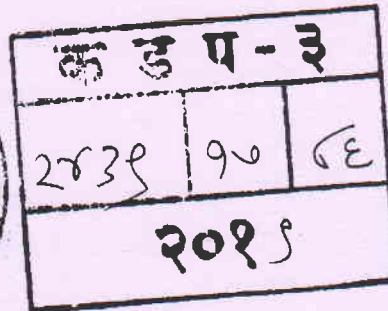 क ड प - ३
२४३९ १७ ८६
२०१९